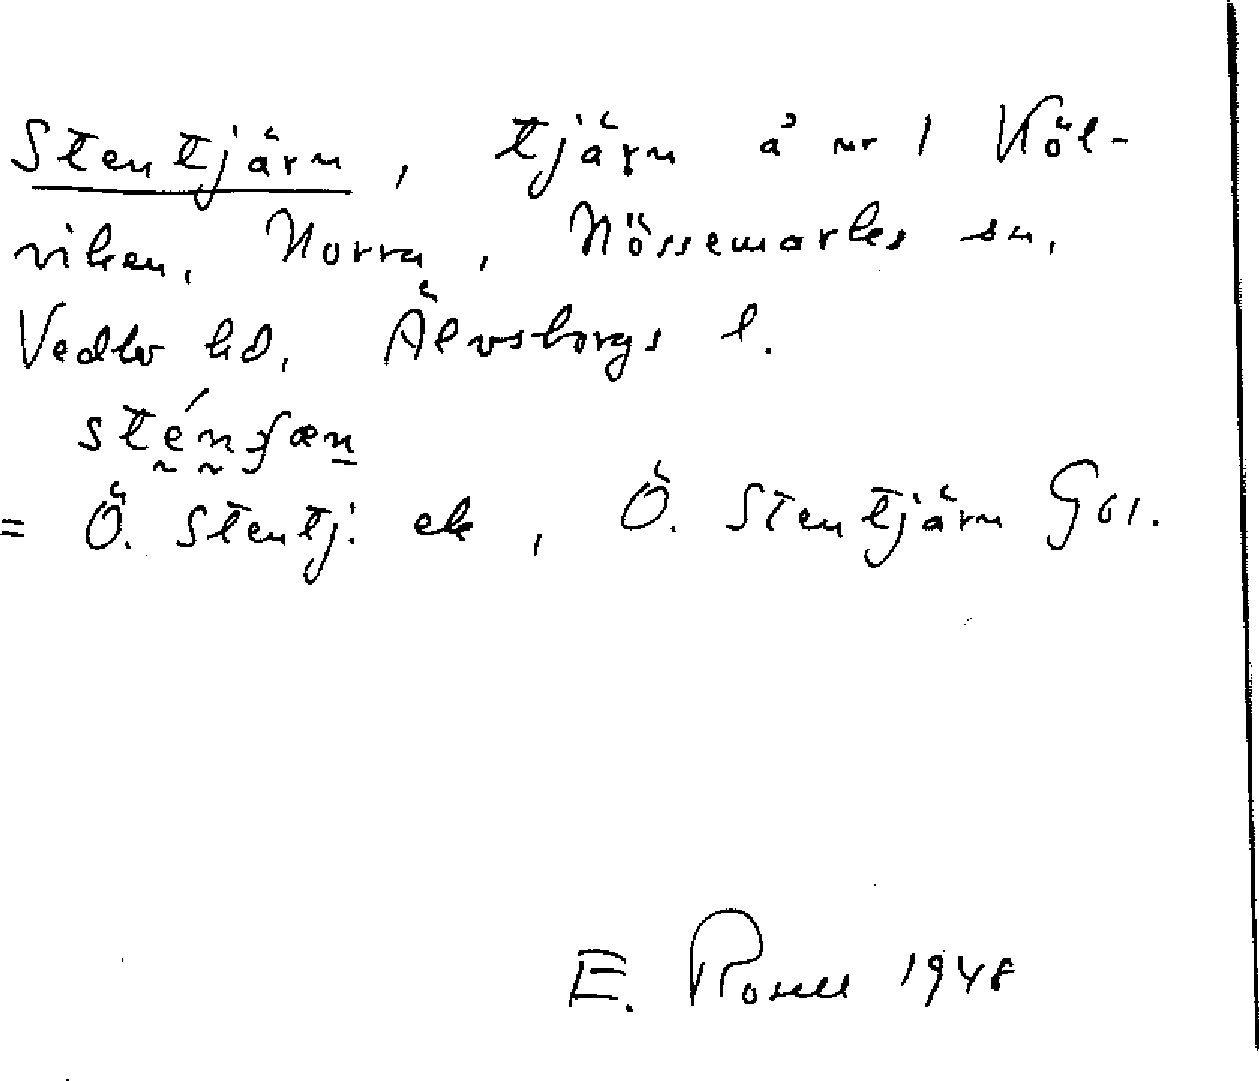 Stentjärn, tjärn å nr 1 Köl-
viken, Norra, Nössemarks sn,
Vedbo hd, Älvsborgs l.
sténʃæn
= Ö. Stentj: ek, Ö. Stentjärn GSI.
E. Rosell 1948